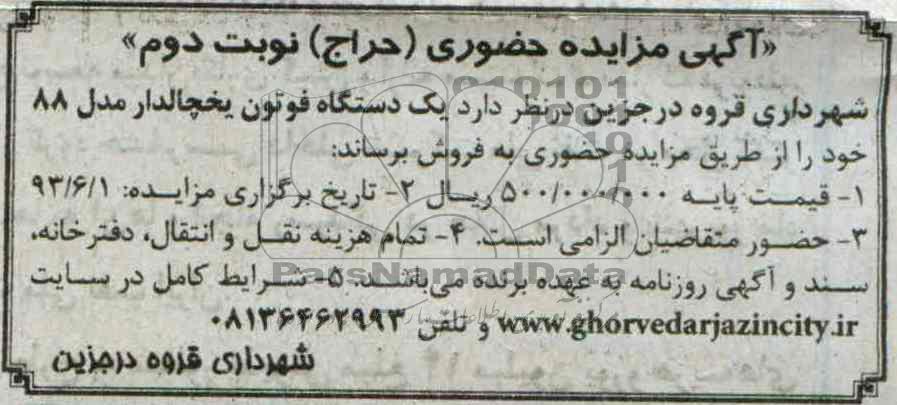 «آگهی مزایده حضوری (حراج) نوبت دوم»
شهرداری قروه درجزین درنظر دارد یک دستگاه فوتون یخچالدار مدل ۸۸
خود را از طریق مزایده حضوری به فروش برساند:
۱- قیمت پایه ۵۰۰/۰۰۰/۰۰۰ ریال ۲- تاریخ برگزاری مزایده: ۹۳/۶/۱
۳- حضور متقاضیان الزامی است. ۴- تمام هزینه نقل و انتقال، دفترخانه،
سند و آگهی روزنامه به عهده برنده می‌باشد. ۵- شرایط کامل در سایت
www.ghorvedarjazincity.ir و تلفن ۰۸۱۳۶۴۶۲۹۹۳
شهرداری قروه درجزین
ParsNamadData